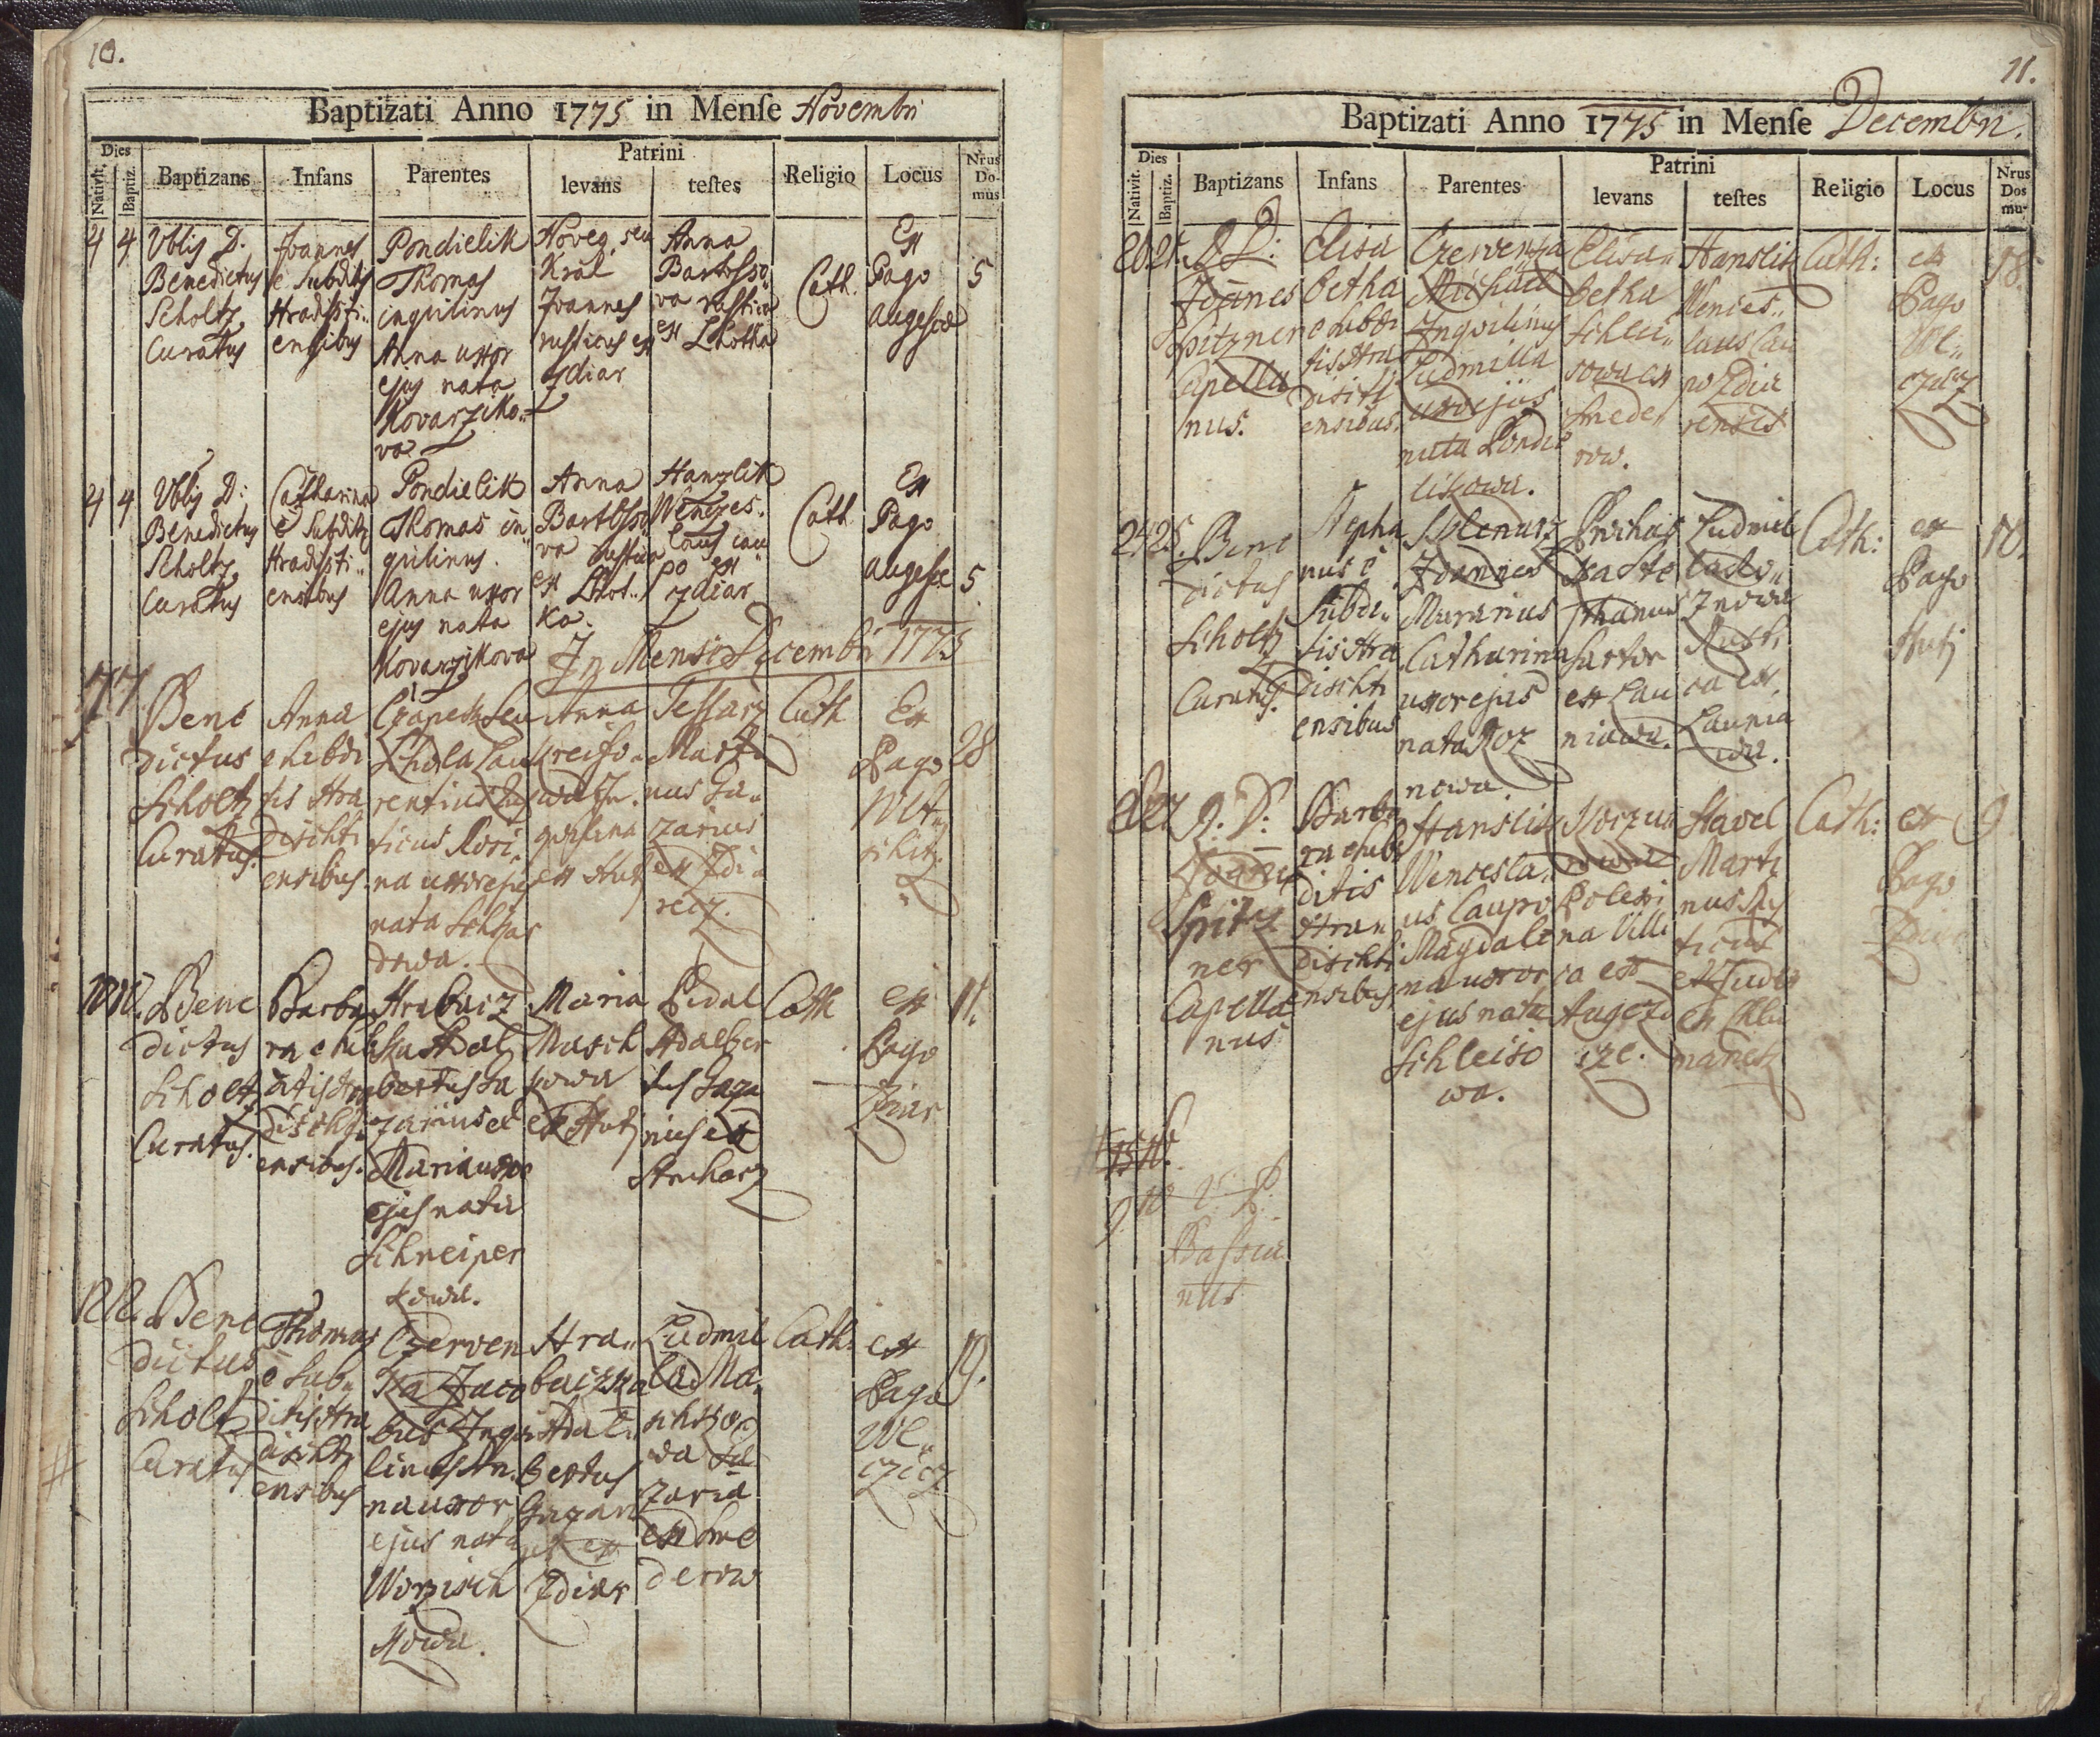 10.
Baptizati Anno 1775 in Mense Novembri
Dies
Nativit.
Baptiz.
Baptizans
Infans
Parentes
Patrini
levans
testes
Religio
Locus
Nrus Do- mus
4 4
Vblis D.
Benedictus
Scholtz
Curatus
Joannes
e Subditis
Hradisti..
ensibus
Pondielik
Thomas
inquilinus
Anna uxor
ejus nata
Kovarziko..
va
Noveq. seu
Kral
Joannes
rusticus ex
Zdiar
Anna
Bartosso..
va rustica
ex Lhotka
Cath.
Ex
Pago
augesd
5
4 4
Vblis D:
Benedictus
Scholtz
Curatus
Catharina
e Subditis
Hradisti..
ensibus
Pondielik
Thomas in..
quilinus.
Anna uxor
ejus nata
Kovarzikova
Anna
Bartosso
va rustica
ex Lhot..
ka.
Hanzlik
Wenzes..
laus cau
po ex
zdiar
Cath
Ex
Pago
augesd
5
In Mense Decembri 1775
7 7
Bene
dictus
Scholtz
Curatus.
Anna
e subdi
tis Hra
dischti
ensibus
Czapek seu
Schola Lau
rentius Rus
ticus Rosi,,
na uxor ejus
nata Schkar
dowa.
Anna
Kreiso..
wa In..
quilina
ex Hut
Tessarz
Marti
nus Ga..
zarius
ex Zdi..
recz.
Cath
Ex
Pago
Wlt..
schitz.
28
10 10.
Bene
dictus
Scholtz
Curatus.
Barba
ra e sub
ditis Hra
dischti
ensibus.
Hrabacz
ka Adal
bertus Ga
zarius et
Maria uxor
ejus nata
Schneiper
kowa.
Maria
Masch
kowa
ex Hutj
Pidal
Adalber
tus Gaza
rius ex
Struharz
Cath
ex
Pago
Zdiar
11.
12 12.
Bene
dictus
Scholtz
Curatus
Thomas
e Sub,,
ditis Hra
dischti
ensibus
Czerwen
ka Jaco
bus Inqui
linus An..
na uxor
ejus nata
Worzisch
kowa.
Hra..
baczka
Adal..
bertus
Gazari
us ex
Zdiar
Ludmil
la Ma,,
schko
wa Ga
zaria
ex Sme
derow
Cath:
ex
Pago
We,,
czicz
19.
11.
Baptizati Anno 1775 in Mense Decembri.
Dies
Nativit.
Baptiz.
Baptizans
Infans
Parentes
Patrini
levans
testes
Religio
Locus
Nrus Dos mu-
20 21.
D:
Joannes
Spitzner
Capella
nus.
Elisa
betha
e subdi
tis Hra
dischti
ensibus.
Czerwenka
Michael
Inquilinus
Ludmilla
uxor ejus
nata Pondie
likowa.
Elisa,,
betha
Schlei,,
sowa ex
Smede,,
row.
Hanslik
Wences..
laus Cau
po Zdia
rensis
Cath:
ex
Pago
We,,
czicz
18.
24 25.
Bene
dictus
Scholtz
Curatus.
Stepha
nus e
Subdi,,
tis Hra
dischti
ensibus
Sklenarz
Joannes
Murarius
Catharina
uxor ejus
nata Roz
nowa
Prohas
ka Ste
phanus
Sartor
ex Lau
niowa.
Ludmil
la
Znowa
Rusti
ca ex
Launio
wa.
Cath:
ex
Pago
Hutj
10.
27
D:
Joannes
Spitz
ner
Capella
nus
Barba
ra e sub
ditis
Hra
dischti
ensibus
Hanslik
Wencesla,,
us Caupo
Magdale
na uxor
ejus nata
Schleiso
wa.
Koczu
rowa
Polexi
na Villi
ca ex
Augezd
cze.
Havel
Marti
nus Rus
ticus
ex Chlu
manek
Cath:
ex
Pago
Zdiar
9
15 16.
9. 10
V. P.
Bassia
nus